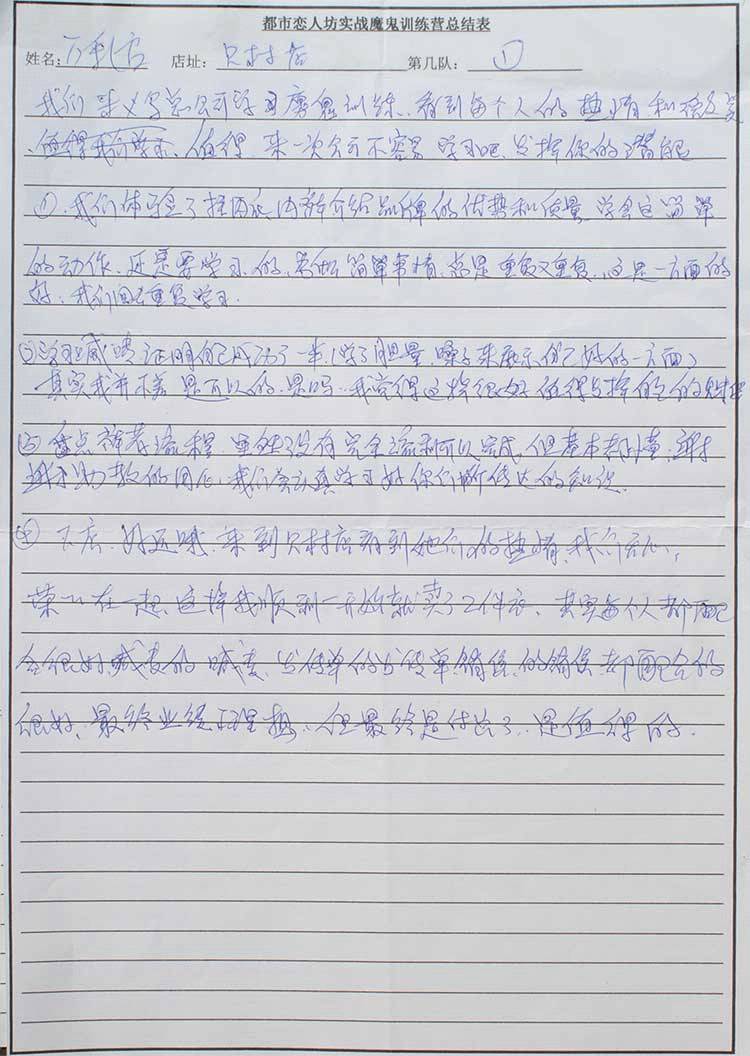 都市恋人坊实战魔鬼训练营总结表
姓名: 店址: 村店 第几队: ①
我们来义乌总公司学习魔鬼训练、看到每个人的热情和
值得我们学习、值得、来一次公司不容易 学习吧、发挥你的潜能
①、我们体验了 介绍品牌的优势和质量 学会这简单
的动作、还是要学习的、 简单事情、总是重复又重复、这是一方面的
好、我们回去重复学习.
② 喊唛证明自己成功了一半(学了胆量、嗓子来展示自己好的一方面)
其实我并不差 是可以的 是吗、我觉得这样很好 值得发挥自己的
③ 盘点 流程、虽然没有完全流利可以完成、但基本都懂、谢
谢 助教的用心、我们会认真学习好你们所传达的知识.
④ 下店、好远哦、来到 村店看到她们的热情、我们
在一起、这样我顺利一开始就卖了2件衣、其实每个人都配
合很好、喊麦的喊麦、发传单的发传单、销售的销售、都配合的
很好、最终业绩 理想、但最终是付出了、是值得的.